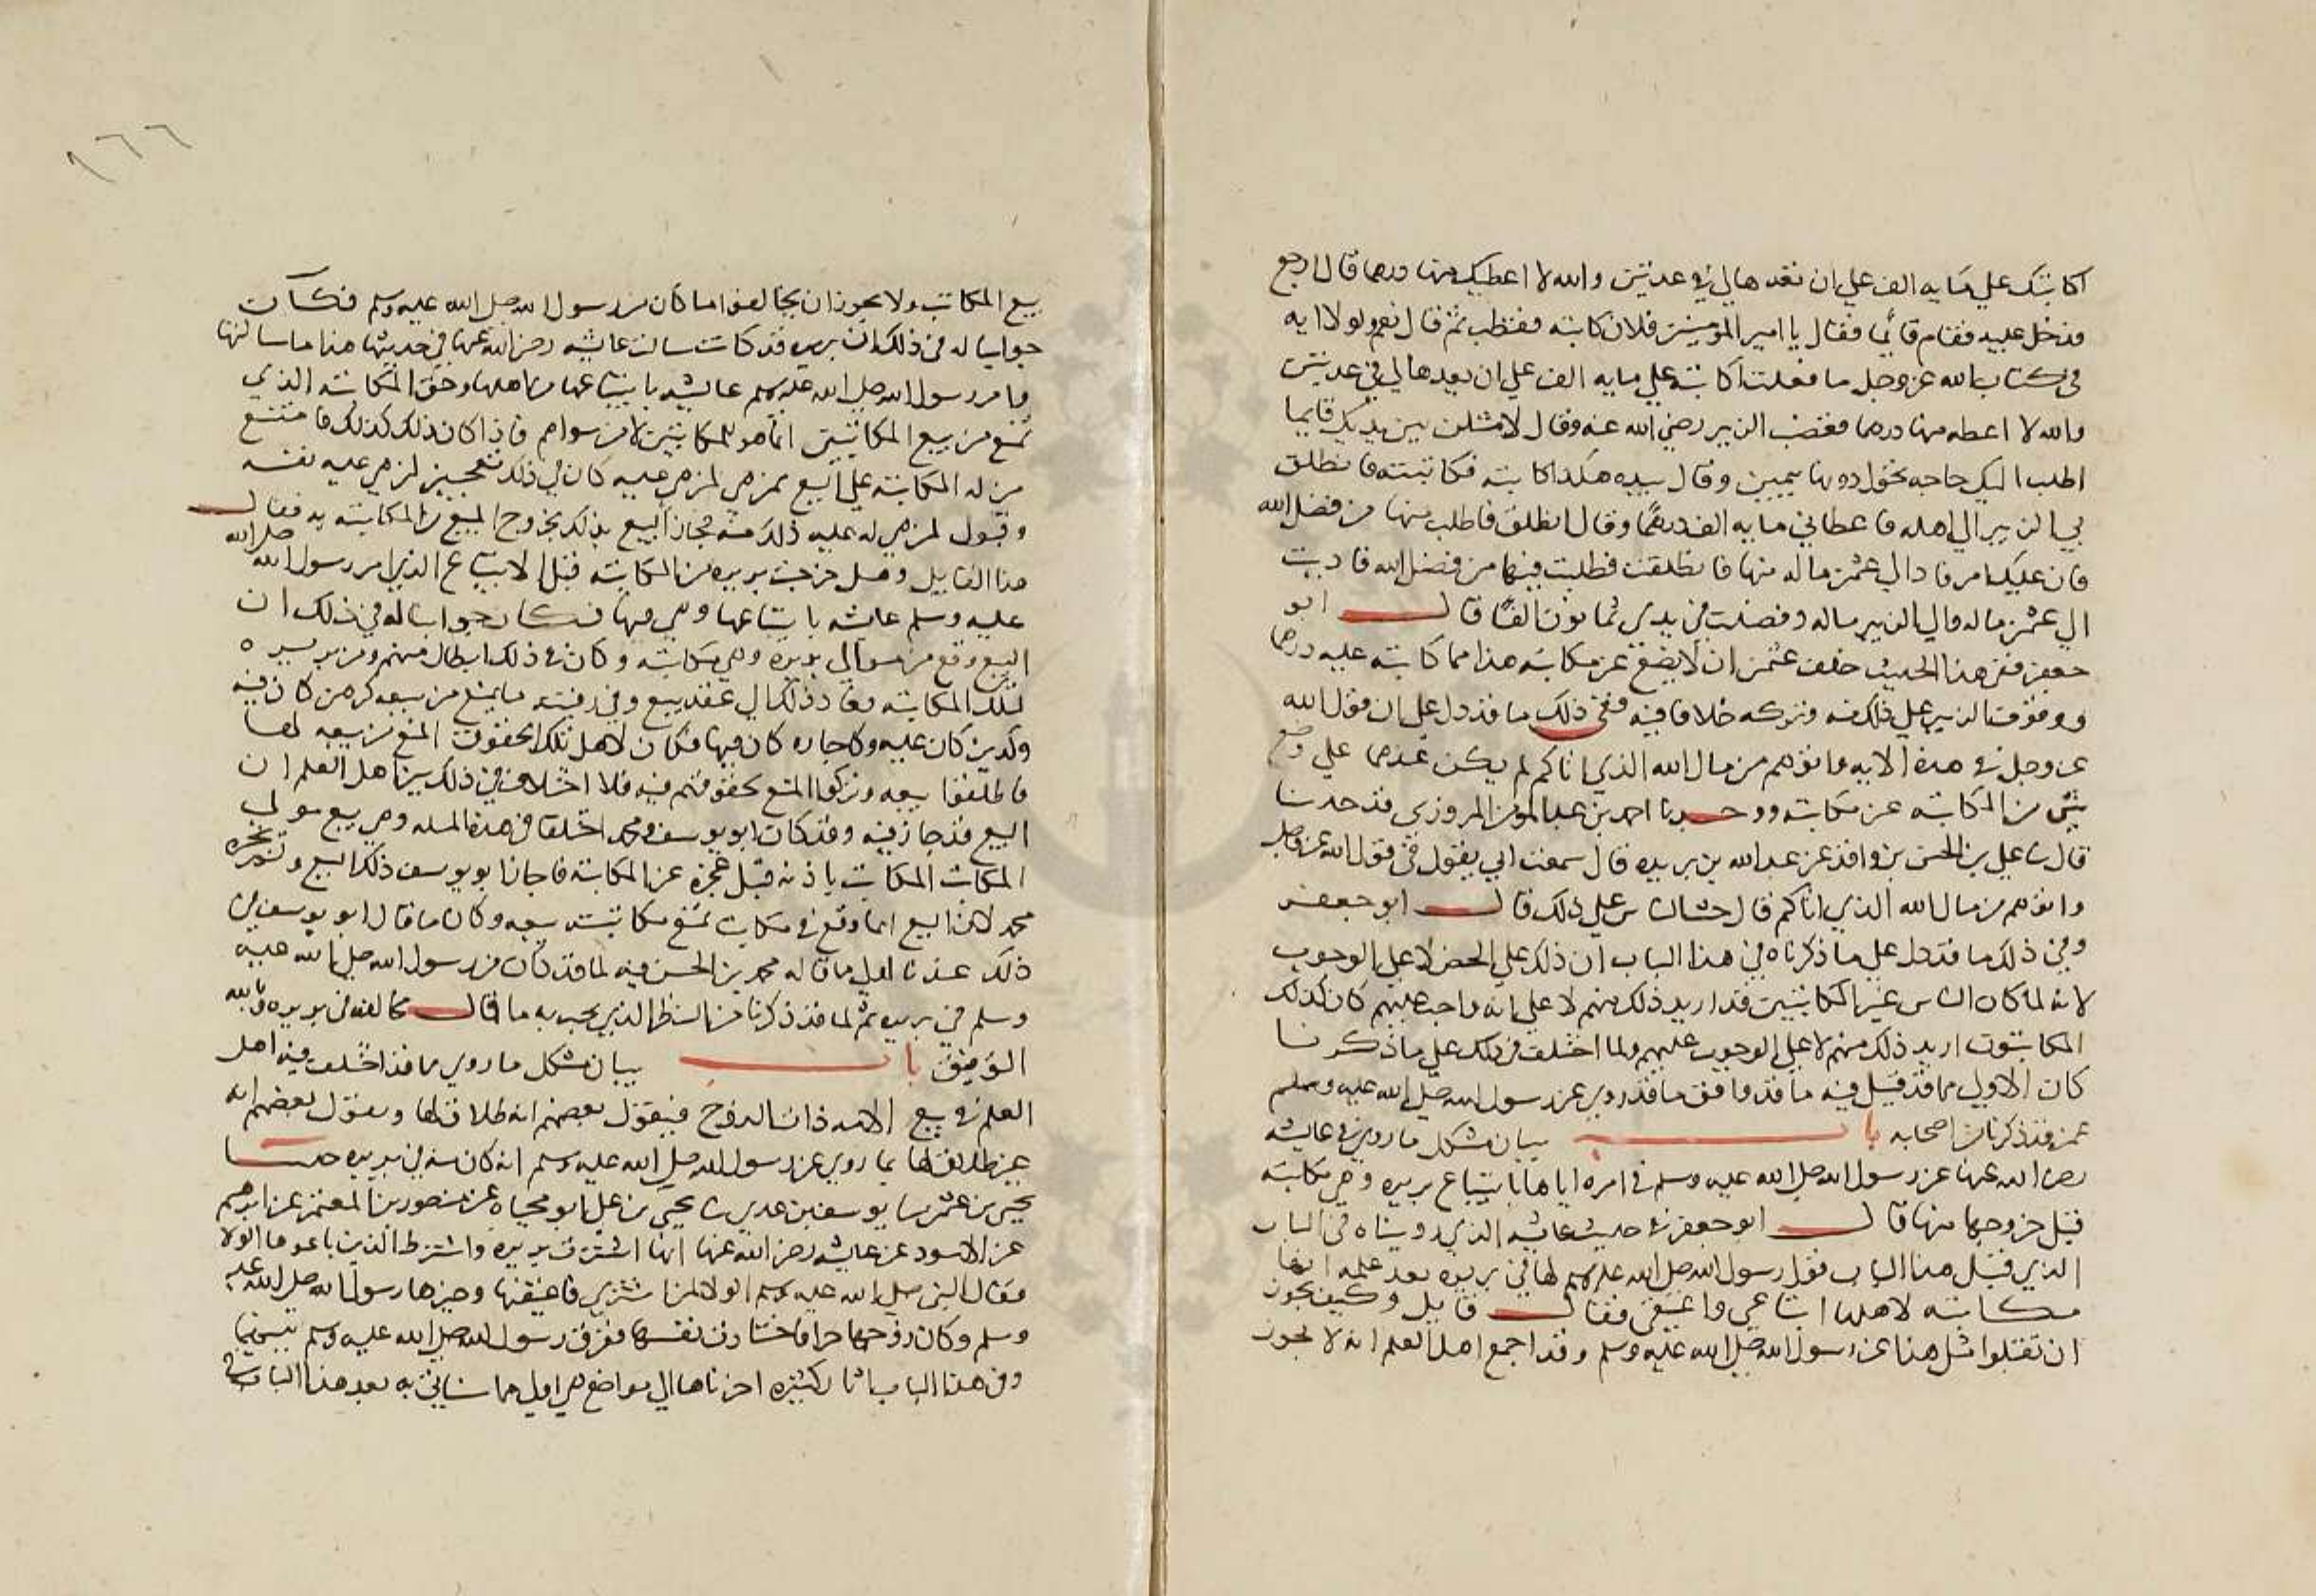 اكاتبك علي مايه الف علي ان تعدهالي في عدتين والله لا اعطيك منها درهما قال ارجع
فدخل عليه فقام قائما فقال يا امير المومنين فلان كاتبه فقطب ثم قال نعم ولولا ايه
في كتاب الله عز وجل ما فعلت اكاتبه علي مايه الف علي ان يعدها لي في عدتين
والله لا اعطه منها درهما فغضب الزبير رضي الله عنه وقال لامثلن بين يديك قايما
اطلب اليك حاجه تحول دونها بيمين وقال بيده هكذا كاتبه فكاتبته فانطلق
بي الزبير الي اهله فاعطاني مايه الف درهما وقال انطلق فاطلب منها من فضل الله
فان غلبك امر فاد الي عثمن ماله منها فانطلقت فطلبت فيها من فضل الله فاديت
الي عثمن ماله والي الزبير ماله وفضلت في يدي ثمانون الفا قال ابو
جعفر ففي هذا الحديث حلف عثمن ان لا يضع عن مكاتبه هذا مما كاتبه عليه درهما
ووقوف الزبير علي ذلك منه وتركه خلافا فيه ففي ذلك ما قد دل علي ان قول الله
عز وجل في هذه الايه واتوهم من مال الله الذي اتاكم لم يكن عندهما علي وضع
شي من المكاتبه عن مكاتبه ووحدثنا احمد بن عبد المومن المروزي قد حدثنا
قال ثنا علي بن الحسن بن واقد عن عبد الله بن بريده قال سمعت ابي يقول في قول الله عز وجل
واتوهم من مال الله الذي اتاكم قال حث الناس علي ذلك قال ابو جعفر
وفي ذلك ما قد دل علي ما ذكرناه في هذا الباب ان ذلك علي الحض لا علي الوجوب
لانه لما كان الناس غير المكاتبين قد اريد ذلك منهم لا علي انه واجب عليهم كان كذلك
المكاتبون اريد ذلك منهم لا علي الوجوب عليهم ولما اختلف في ذلك علي ما ذكرنا
كان الاولي مما قد قيل فيه ما قد وافق ما قد روي عن رسول الله صلي الله عليه وسلم
عمن قد ذكرنا من اصحابه باب بيان مشكل ما روي في عايشه
رضي الله عنها عن رسول الله صلي الله عليه وسلم في امره اياها بابتياع بريره وهي مكاتبه
قبل خروجها منها قال ابو جعفر في حديث عايشه الذي رويناه في الباب
الذي قبل هذا الباب قول رسول الله صلي الله عليه وسلم لها في بريره بعد علمه انها
مكاتبه لاهلها ابتاعي واعتقي فقال قايل وكيف يجوز
ان تقبلوا مثل هذا عن رسول الله صلي الله عليه وسلم وقد اجمع اهل العلم انه لا يجوز
١٦٦
بيع المكاتب ولا يجوز ان يخالفوا ما كان من رسول الله صلي الله عليه وسلم فكان
جوابنا له في ذلك ان بريره قد كانت سالت عايشه رضي الله عنها في حديثها هذا ما سالتها
وامر رسول الله صلي الله عليه وسلم عايشه بابتياعها من اهلها وحق المكاتبه الذي
يمنع من بيع المكاتبين انما هو للمكاتبين لا من سواهم فاذا كان ذلك كذلك فامتنع
من له المكاتبه علي البيع ممن هي لمن هي عليه كان في ذلك تعجيز لمن هي عليه نفسه
وقبول لمن هي له عليه ذلك منه فجاز البيع بذلك بخروج المبيع من المكاتبه به فقال
هذا القايل وهل خرجت بريره من المكاتبه قبل الابتياع الذي امر رسول الله صلي الله
عليه وسلم عايشه بابتياعها وهي فيها فكان جوابنا له في ذلك ان
البيع وقع من موالي بريره وهي مكاتبه وكان في ذلك ابطال منهم ومن بريره
لتلك المكاتبه وعاد ذلك الي عقد بيع وفي رقبته ما يمنع من بيعه كرهن كان فيه
ولدين كان عليه وكاجاره كان فيها فكان لاهل تلك الحقوق المنع من بيعه لها
فاطلقوا بيعه وتركوا المنع بحقوقهم فيه فلا اختلاف في ذلك بين اهل العلم ان
البيع قد جاز فيه وقد كان ابو يوسف ومحمد اختلفا في هذه المسله وهي بيع مولي
المكاتب المكاتب باذنه قبل عجزه عن المكاتبه فاجاز ابو يوسف ذلك البيع ولم يجزه
محمد لان البيع انما وقع في مكاتب تمنع مكاتبته بيعه وكان ما قال ابو يوسف في
ذلك عندنا اولي ما قاله محمد بن الحسن فيه لما قد كان من رسول الله صلي الله عليه
وسلم في بريره ثم لما قد ذكرنا من النظر الذي يجب به ما قال مخالفه في بريره وبالله
التوفيق باب بيان مشكل ما روي مما قد اختلف فيه اهل
العلم في بيع الامه ذات الزوج فيقول بعضهم انه طلاق لها ويقول بعضهم انه
غير طلاق لها بما روي عن رسول الله صلي الله عليه وسلم انه كان منه في بريره حدثنا
يحيي بن عثمن ثنا يوسف بن عدي ثنا يحيي بن علي ابو محياه عن منصور بن المعتمر عن ابرهيم
عن الاسود عن عايشه رضي الله عنها انها اشترت بريره واشترط الذين باعوها الولا
فقال النبي صلي الله عليه وسلم الولا لمن اشتري فاعتقتها وخيرها رسول الله صلي الله عليه
وسلم وكان زوجها حرا فاختارت نفسها ففرق رسول الله صلي الله عليه وسلم بينهما
وفي هذا الباب اثار كثيره اخرناها الي مواضع هي اولي مما سناتي به بعد هذا الباب في